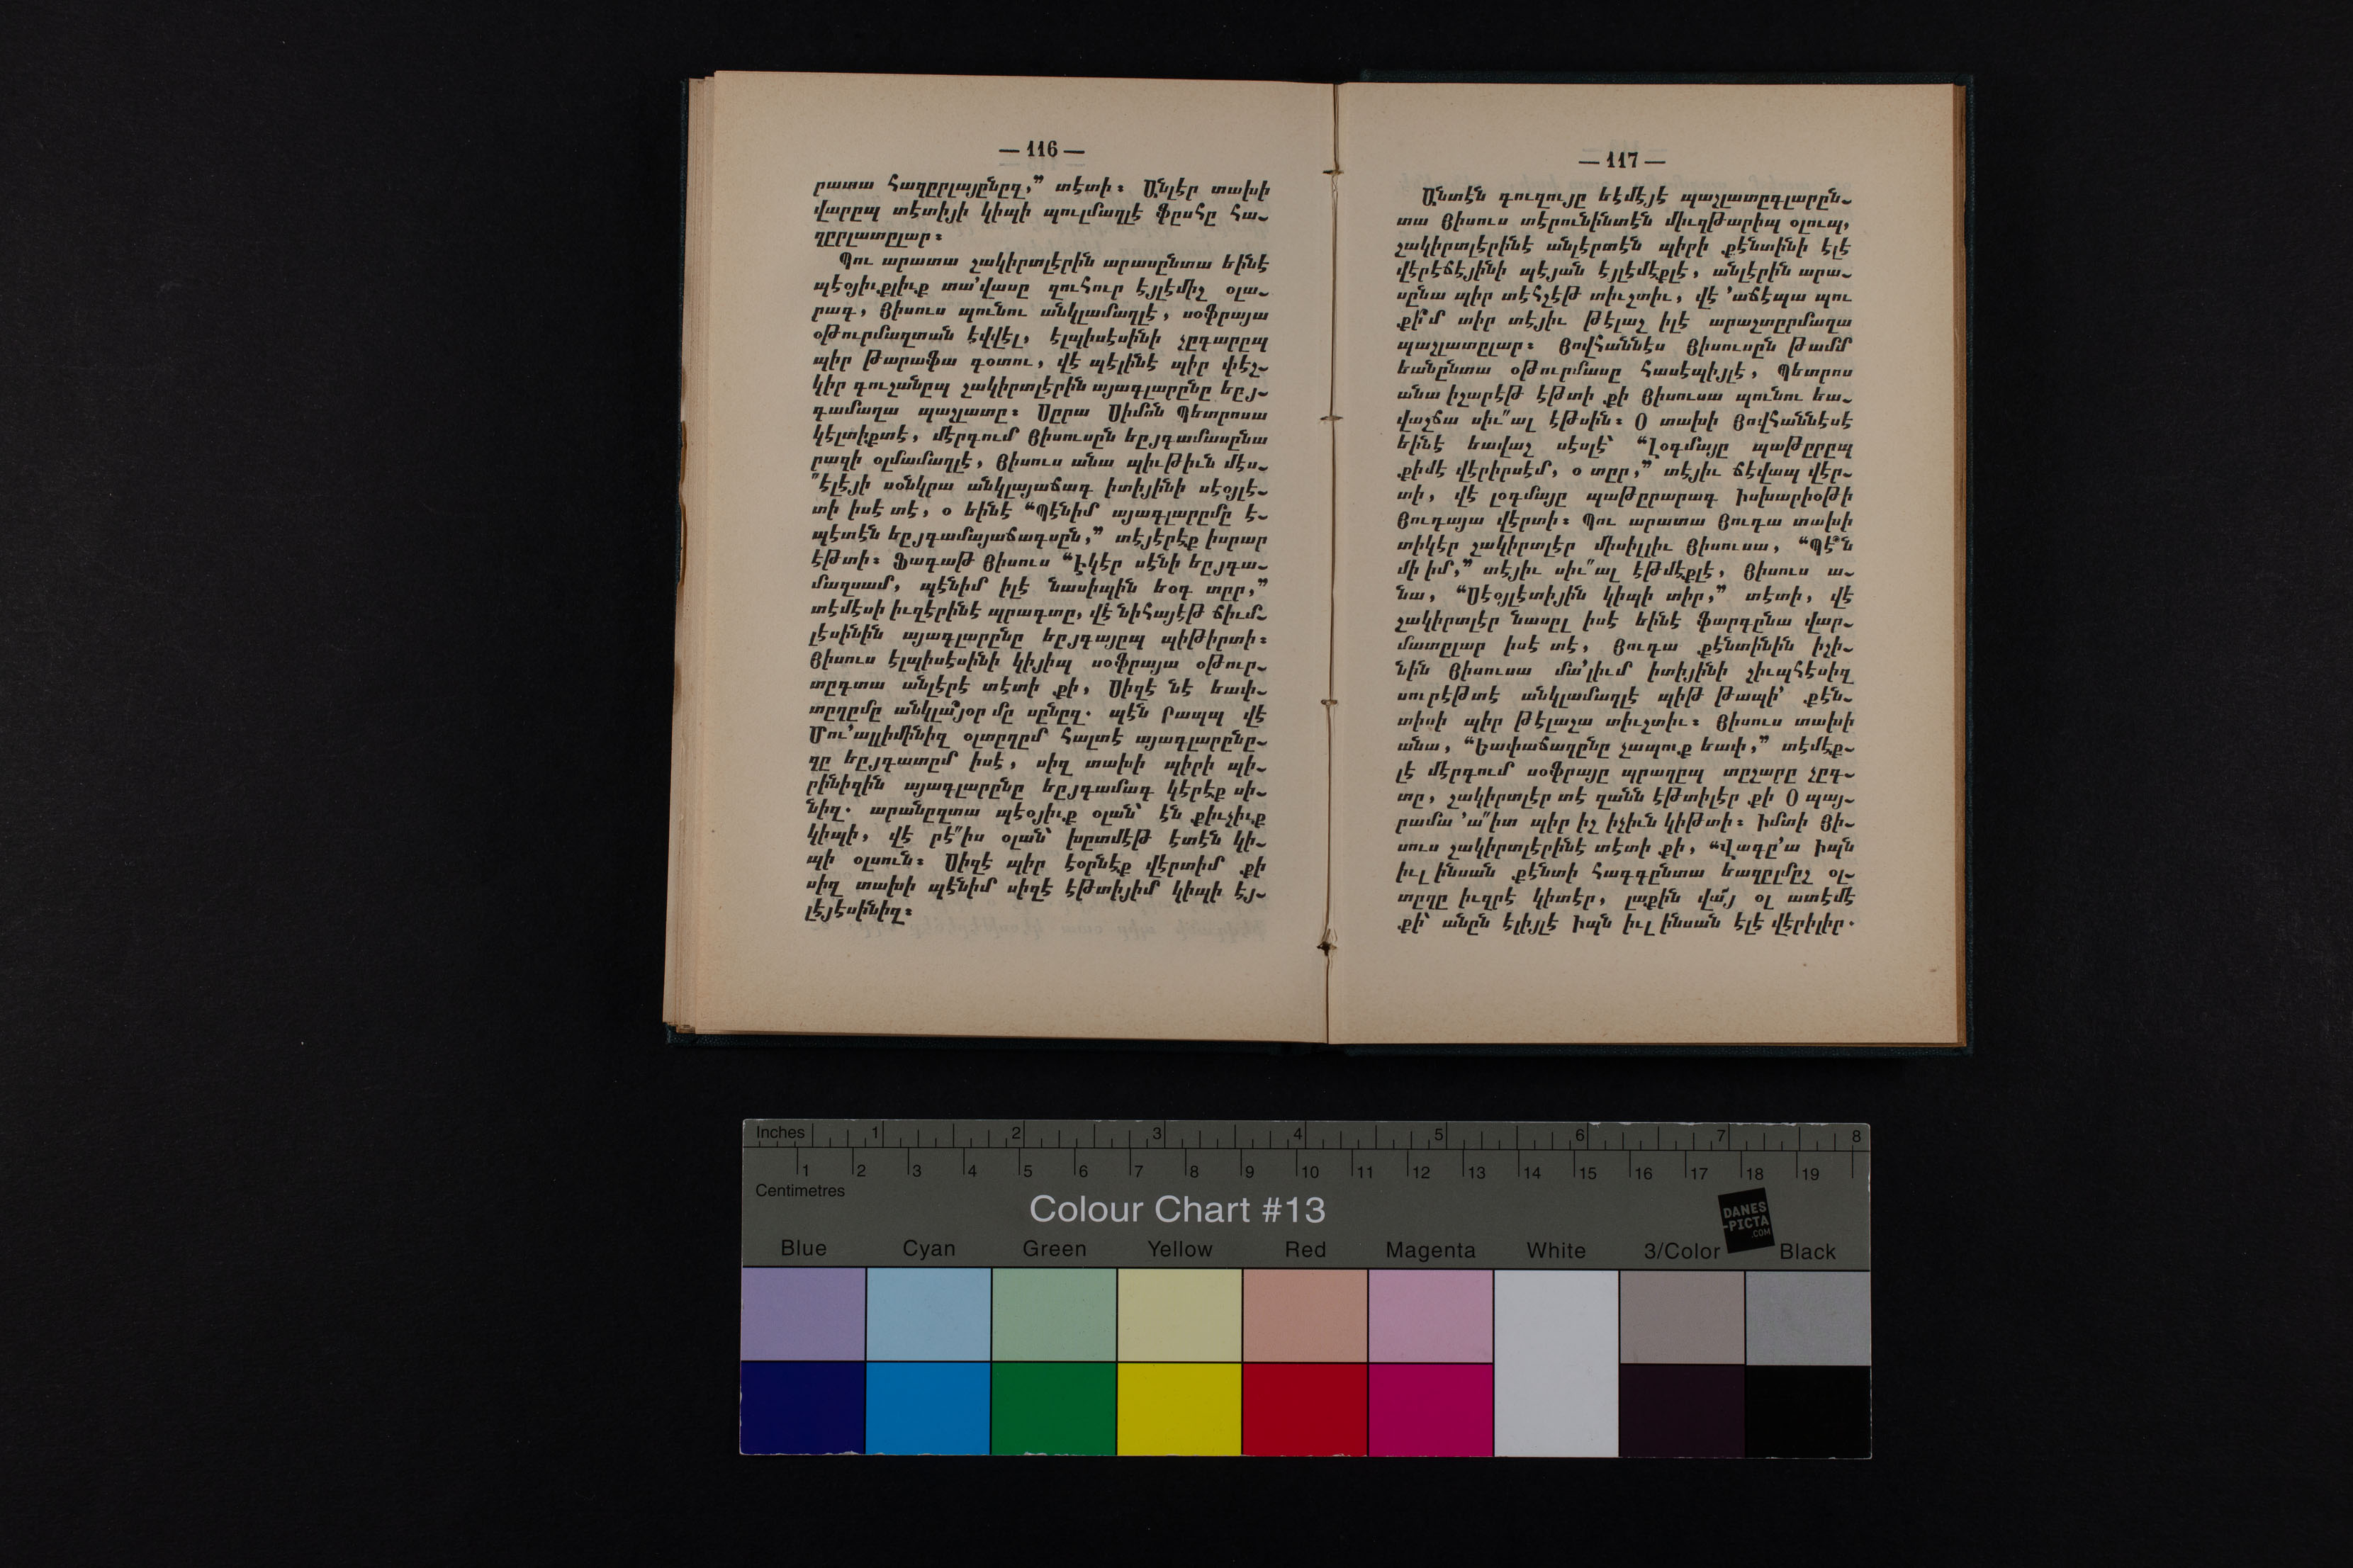 — 116 —
րատա հազըրլայընըզ,” տէտի։ Անլէր տախի
վարըպ տէտիյի կիպի պուլմաղլէ ֆըսհը հա-
զըրլատըլար։
Պու արատա շակիրտլէրին արասընտա եինէ
պէօյիւքլիւք տա՚վասը զուհուր էյլէմիշ օլա-
րագ, Յիսուս պունու անկլամաղլէ, սօֆրայա
օթուրմազտան էվվէլ, էլպիսէսինի չըգարըպ
պիր թարաֆա գօտու, վէ պէլինէ պիր փէշ-
կիր գուշանըպ շակիրտլէրին այագլարընը եըյ-
գամաղա պաշլատը։ Սըրա Սիմոն Պետրոսա
կէլտիքտէ, մէրգում Յիսուսըն եըյգամասընա
րազի օլմամաղլէ, Յիսուս անա պիւթիւն մէս-
՚՚էլէյի սօնկրա անկլայաճագ իտիյինի սէօյլէ-
տի իսէ տէ, օ եինէ “Պէնիմ այագլարըմը է-
պէտէն եըյգամայաճագսըն,” տէյէրէք իսրար
էթտի։ Ֆագաթ Յիսուս “Էկէր սէնի եըյգա-
մազսամ, պէնիմ իլէ նասիպին եօգ տըր,”
տէմէսի իւզէրինէ պրագտը, վէ նիհայէթ ճիւմ-
լէսինին այագլարընը եըյգայըպ պիթիրտի։
Յիսուս էլպիսէսինի կիյիպ սօֆրայա օթուր-
տըգտա անլէրէ տէտի քի, Սիզէ նէ եափ-
տըղըմը անկլա՞յօր մը սընըզ. պէն Րապպ վէ
Մու՚ալլիմինիզ օլտըղըմ հալտէ այագլարընը-
զը եըյգատըմ իսէ, սիզ տախի պիրի պի-
րինիզին այագլարընը եըյգամագ կէրէք սի-
նիզ. արանըզտա պէօյիւք օլան՝ էն քիւչիւք
կիպի, վէ րէ՚՚իս օլան՝ խըտմէթ էտէն կի-
պի օլսուն։ Սիզէ պիր էօրնէք վէրտիմ քի
սիզ տախի պէնիմ սիզէ էթտիյիմ կիպի էյ-
լէյէսինիզ։
— 117 —
Անտէն գուզույը եէմէյէ պաշլատըգլարըն-
տա Յիսուս տէրունինտէն միւզթարիպ օլուպ,
շակիրտլէրինէ անլէրտէն պիրի քէնտինի էլէ
վէրէճէյինի պէյան էյլէմէքլէ, անլէրին արա-
սընա պիր տէհշէթ տիւշտիւ, վէ ՚աճէպա պու
քի՞մ տիր տէյիւ թէլաշ իլէ արաշտըրմաղա
պաշլատըլար։ Յովհաննէս Յիսուսըն թամմ
եանընտա օթուրմասը հասէպիյլէ, Պետրոս
անա իշարէթ էթտի քի Յիսուսա պունու եա-
վաշճա սիւ՚՚ալ էթսին։ Օ տախի Յովհաննէսէ
եինէ եավաշ սէսլէ՝ “Լօգմայը պաթըրըպ
քիմէ վէրիրսէմ, օ տըր,” տէյիւ ճէվապ վէր-
տի, վէ լօգմայը պաթըրարագ Իսխարիօթի
Յուդայա վէրտի։ Պու արատա Յուդա տախի
տիկէր շակիրտլէր միսիլլիւ Յիսուսա, “Պէ՞ն
մի իմ,” տէյիւ սիւ՚՚ալ էթմէքլէ, Յիսուս ա-
նա, “Սէօյլէտիյին կիպի տիր,” տէտի, վէ
շակիրտլէր նասըլ իսէ եինէ ֆարգընա վար-
մատըլար իսէ տէ, Յուդա քէնտինին իշի-
նին Յիսուսա մա՚լիւմ իտիյինի շիւպհէսիզ
սուրէթտէ անկլամաղլէ պիթ թապի՚ քէն-
տիսի պիր թէլաշա տիւշտիւ։ Յիսուս տախի
անա, “Եափաճաղընը չապուք եափ,” տէմէք-
լէ մէրգում սօֆրայը պրաղըպ տըշարը չըգ-
տը, շակիրտլէր տէ զանն էթտիլէր քի Օ պայ-
րամա ՚ա՚՚իտ պիր իշ իչիւն կիթտի։ Իմտի Յի-
սուս շակիրտլէրինէ տէտի քի, “Վագը՚ա Իպն
իւլ ինսան քէնտի հագգընտա եազըլմըշ օլ-
տըղը իւզրէ կիտէր, լաքին վա՜յ օլ ատէմէ
քի՝ անըն էլիյլէ Իպն իւլ ինսան էլէ վէրիլիր.
Inches 1 2 3 4 5 6 7 8
1 2 3 4 5 6 7 8 9 10 11 12 13 14 15 16 17 18 19
Centimetres
Colour Chart #13
DANES
-PICTA
.COM
Blue Cyan Green Yellow Red Magenta White 3/Color Black